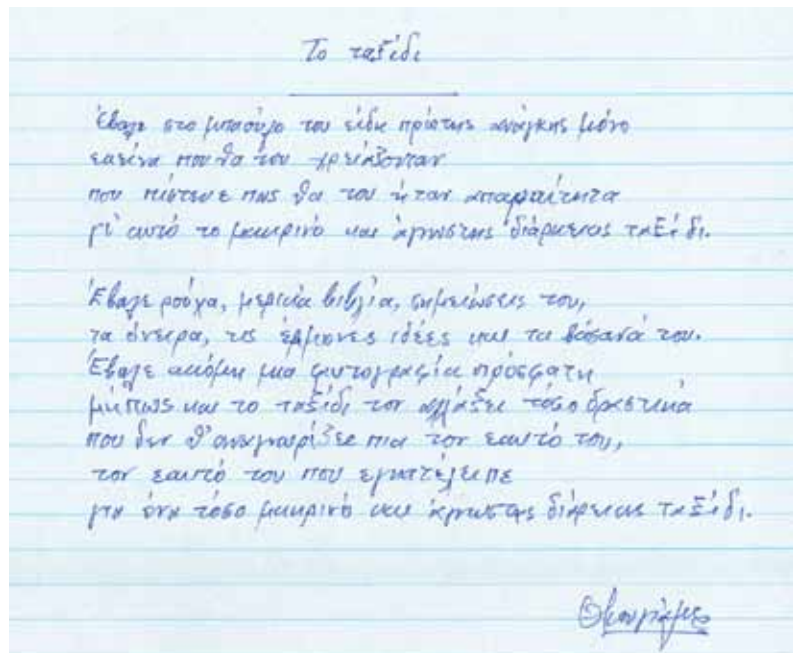 Το ταξίδι
Έβαλε στο μπαούλο του είδη πρώτης ανάγκης μόνο
εκείνα που θα του χρειάζονταν
που πίστευε πως θα του ήταν απαραίτητα
γι' αυτό το μακρινό και άγνωστης διάρκειας ταξίδι.
Έβαλε ρούχα, μερικά βιβλία, σημειώσεις του,
τα όνειρα, τις έμμονες ιδέες και τα βάσανά του.
Έβαλε ακόμη μια φωτογραφία πρόσφατη
μήπως και το ταξίδι τον αλλάξει τόσο δραστικά
που δεν θ' αναγνωρίζει πια τον εαυτό του,
τον εαυτό του που εγκατέλειπε
για ένα τόσο μακρινό και άγνωστης διάρκειας ταξίδι.